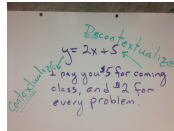 Decontextualize
y = 2x + 5
Contextualize
I pay you $5 for coming
class, and $2 for
every problem.